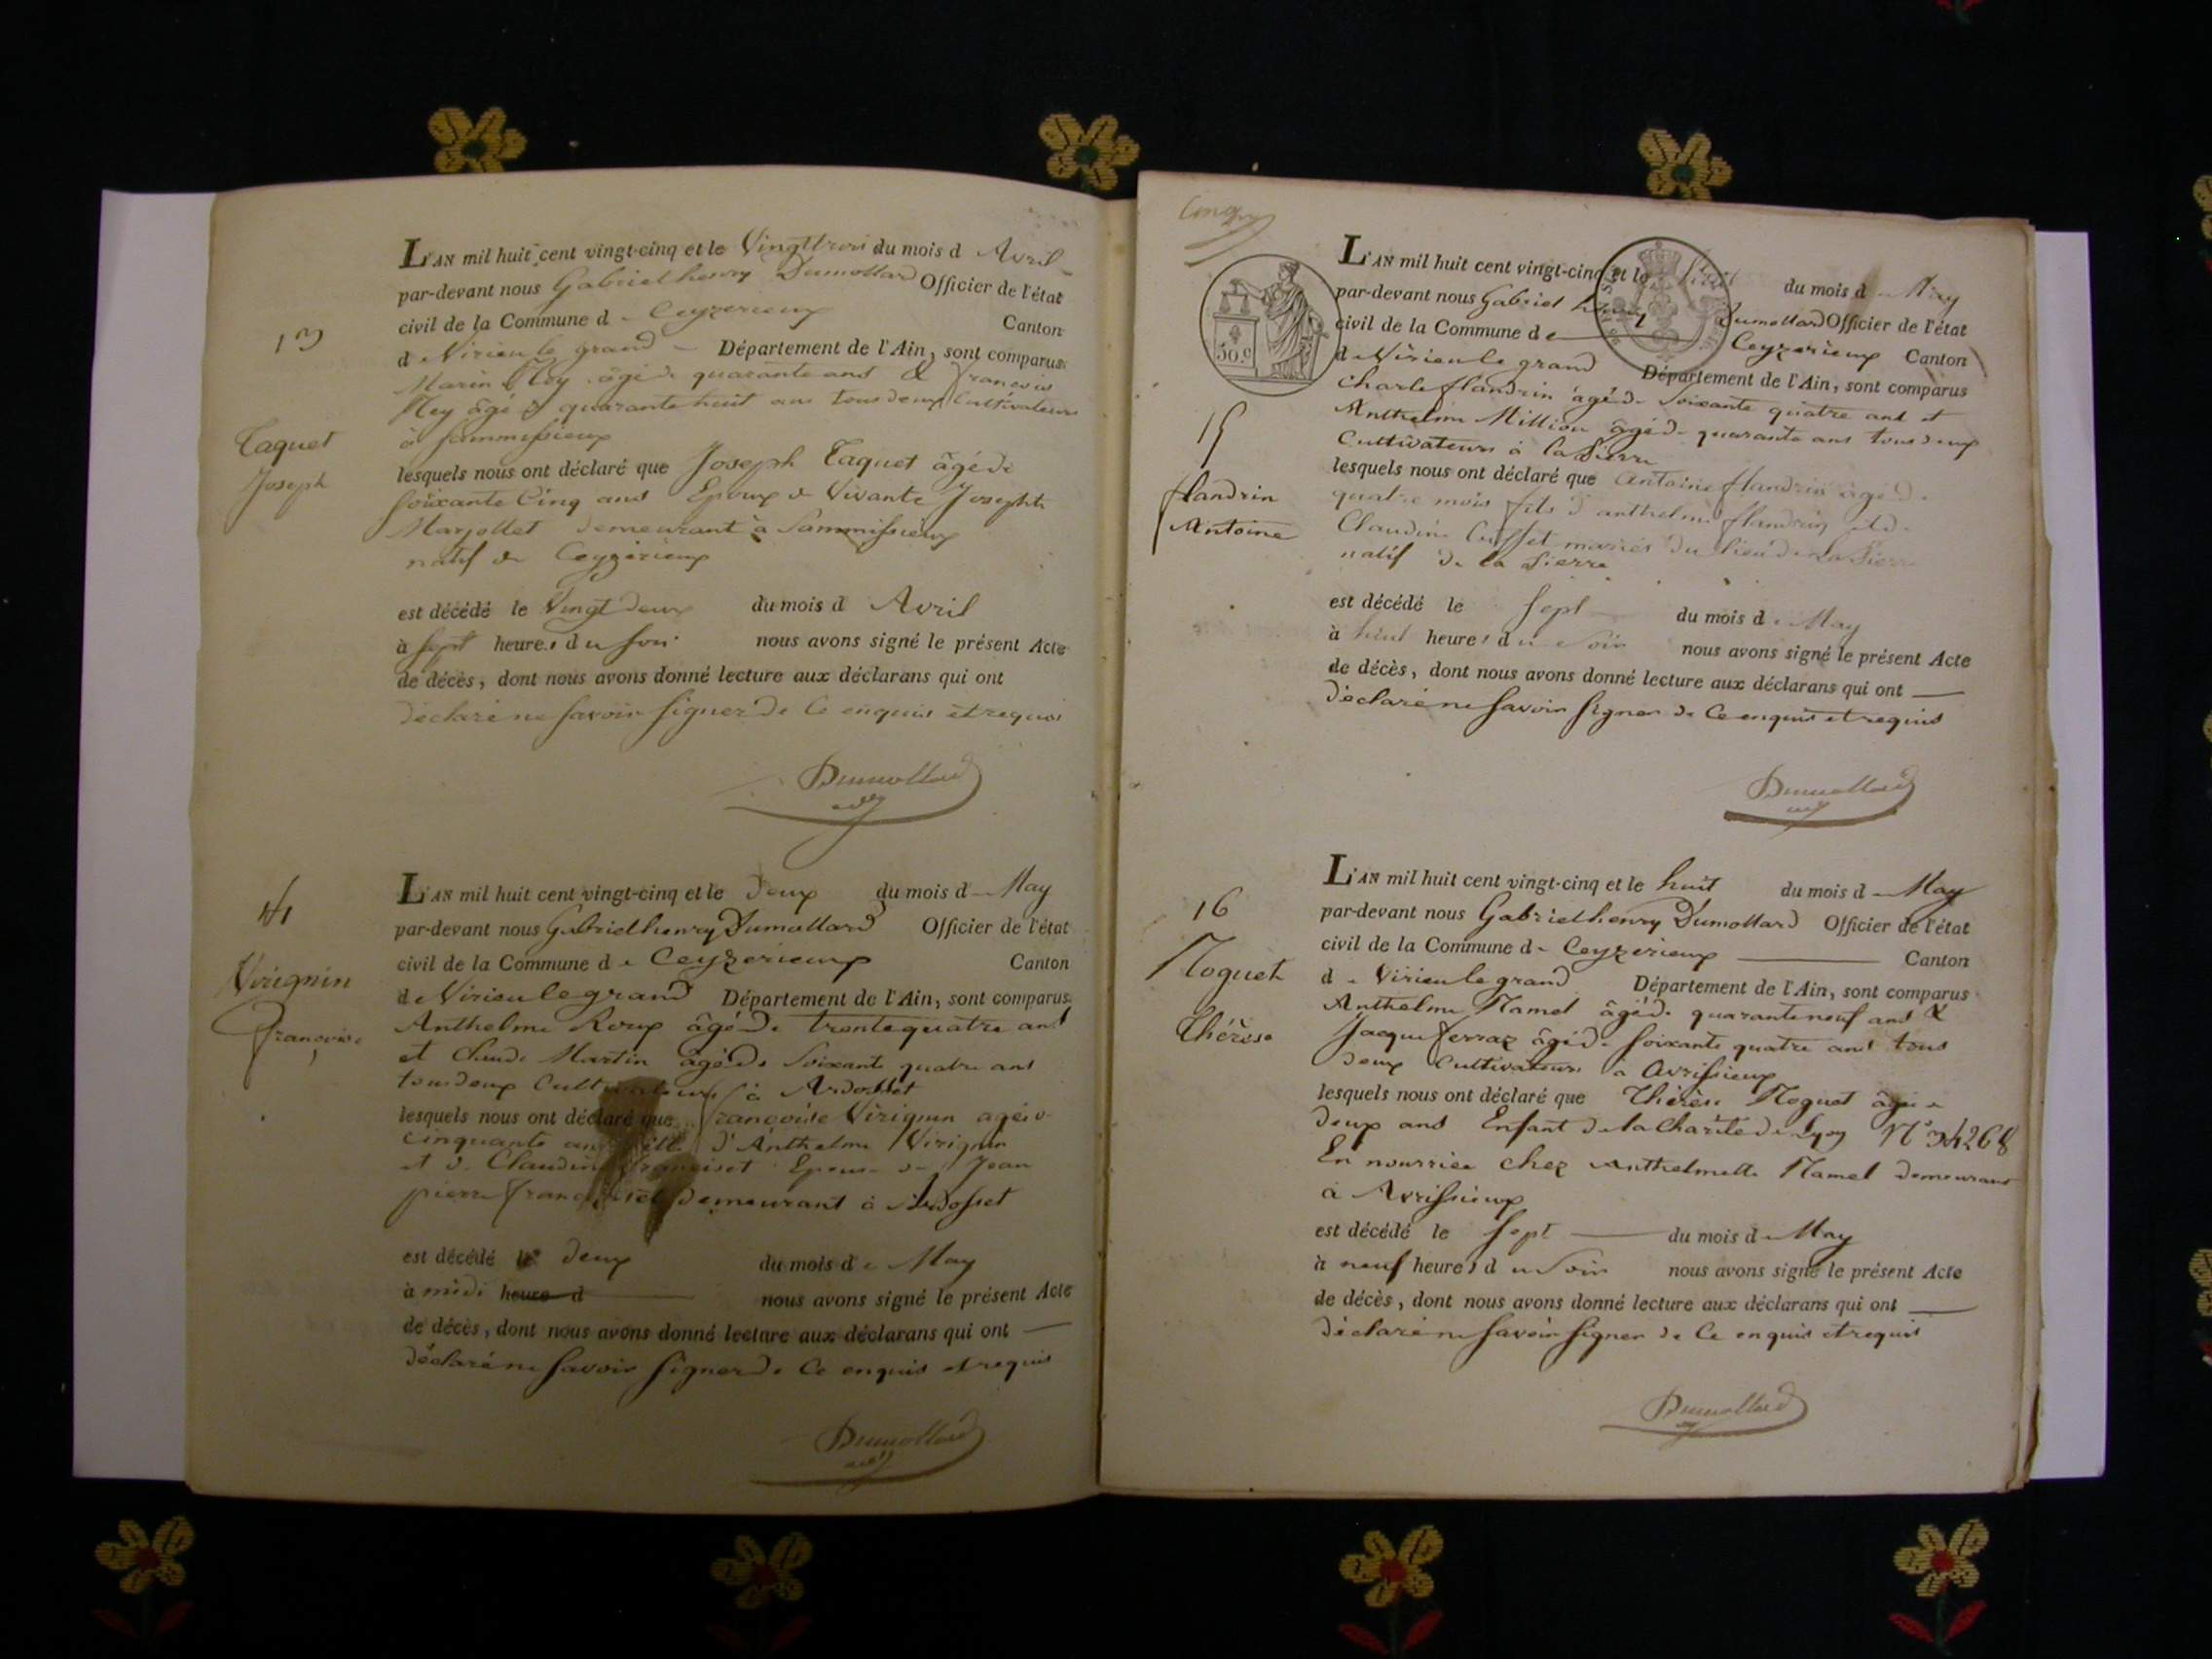 13
Taquet
Joseph
L'AN mil huit cent vingt-cinq et le Vingt trois du mois d Avril
par-devant nous Gabriel henry Dumollard Officier de l'état
civil de la Commune d e Ceyzerieux Canton
de Virieu le grand Département de l'Ain, sont comparus
Marin Rey âgé de quarante ans & francois
Rey âgé de quarante huit ans tous deux Cultivateurs
à Sammissieux
lesquels nous ont déclaré que Joseph Taquet âgé de
soixante Cinq ans Epoux de Vivante Josephte
Marjollet demeurant à Sammissieux
natif de Ceyzerieux
est décédé le Vingt deux du mois d Avril
à sept heures du soir nous avons signé le présent Acte
de décès, dont nous avons donné lecture aux déclarans qui ont
déclaré ne savoir signer de Ce enquis et requis
Dumollard
14
Virignin
francoise
L'AN mil huit cent vingt-cinq et le deux du mois d e May
par-devant nous Gabriel henry Dumollard Officier de l'état
civil de la Commune d e Ceyzerieux Canton
de Virieu le grand Département de l'Ain, sont comparus
Anthelme Roux âgé de trente quatre ans
et Claude Martin âgé de soixante quatre ans
tous deux Cultivateurs à Ardosset
lesquels nous ont déclaré que francoise Virignin agée de
cinquante ans fille d'Anthelme Virignin
et de Claudine Epouse de Jean
pierre demeurant à Ardosset
est décédé le deux du mois d e May
à midi heure d nous avons signé le présent Acte
de décès, dont nous avons donné lecture aux déclarans qui ont
déclaré ne savoir signer de Ce enquis et requis
Dumollard
50 c
15
flandrin
Antoine
L'AN mil huit cent vingt-cinq et le huit du mois d e May
par-devant nous Gabriel henry Dumollard Officier de l'état
civil de la Commune de Ceyzerieux Canton
de Virieu le grand Département de l'Ain, sont comparus
Charle flandrin âgé de soixante quatre ans et
Anthelme Million âgé de quarante ans tous deux
Cultivateurs à la Pierre
lesquels nous ont déclaré que Antoine flandrin âgé de
quatre mois fils d'anthelme flandrin et de
Claudine mariés du lieu de La Pierre
natif de la Pierre
est décédé le sept du mois d e May
à huit heures du soir nous avons signé le présent Acte
de décès, dont nous avons donné lecture aux déclarans qui ont
déclaré ne savoir signer de Ce enquis et requis
Dumollard
16
Noguet
Thérèse
L'AN mil huit cent vingt-cinq et le huit du mois d e May
par-devant nous Gabriel henry Dumollard Officier de l'état
civil de la Commune d e Ceyzerieux Canton
d e Virieu le grand Département de l'Ain, sont comparus
Anthelme Mamet âgé de quarante neuf ans &
Jacque ferraz âgé de soixante quatre ans tous
deux Cultivateurs a Avrissieux
lesquels nous ont déclaré que Thérèse Noguet âgée de
deux ans Enfant de la Charité de Lyon N° 34268
En nourrice chez Anthelmette Mamet demeurant
à Avrissieux
est décédé le sept du mois d e May
à neuf heures d u Soir nous avons signé le présent Acte
de décès, dont nous avons donné lecture aux déclarans qui ont
déclaré ne savoir signer de Ce enquis et requis
Dumollard